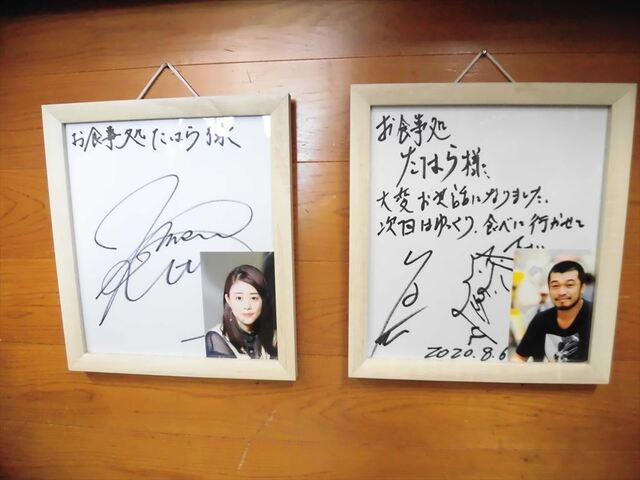 お食事処 たはら様
お食事処
たはら様
大変お世話になりました。
次回はゆっくり、食べに行かせて
2020.8.6